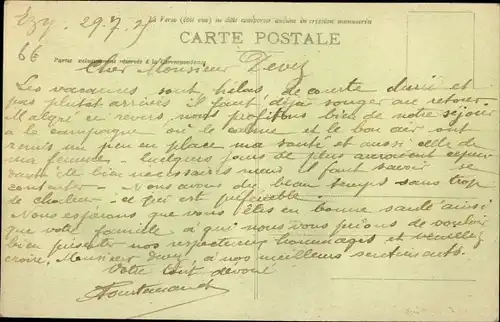 Ezy, 29.7.25
66
CARTE POSTALE
Partie exclusivement réservée à la Correspondance
Cher Monsieur Devy
Les vacances sont, hélas de courte durée et
pas plutôt arrivés il faut déjà songer au retour.
Malgré ce revers, nous profitons bien de notre séjour
à la campagne où le calme et le bon air ont
remis un peu en place ma santé et aussi celle de
ma femme. Quelques jours de plus auraient cepen-
dant été bien nécessaires mais il faut savoir se
contenter. Nous avons du beau temps sans trop
de chaleur ce qui est préférable.
Nous espérons que vous êtes en bonne santé ainsi
que votre famille à qui nous vous prions de vouloir
bien présenter nos respectueux hommages et veuillez
croire, Monsieur Devy, à nos meilleurs sentiments.
Votre tout dévoué